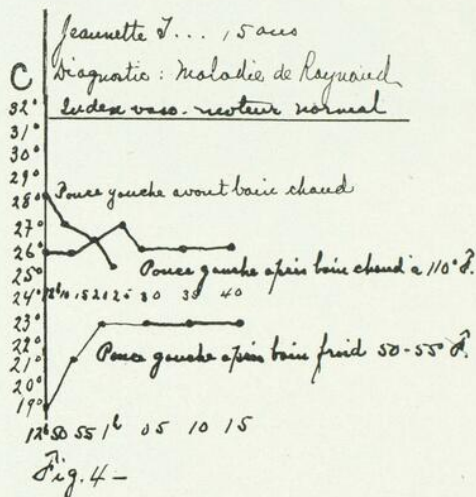 Jeannette J... 15 ans
Diagnostic : Maladie de Raynaud
Index vaso-moteur normal
C
32°
31°
30°
29°
28°
Pouce gauche avant bain chaud
27°
26°
25°
Pouce gauche après bain chaud à 110° F.
24°
12h 10 15 20 25 30 35 40
23°
22°
21°
Pouce gauche après bain froid 50-55° F.
20°
19°
12h 50 55 1h 05 10 15
Fig. 4 –